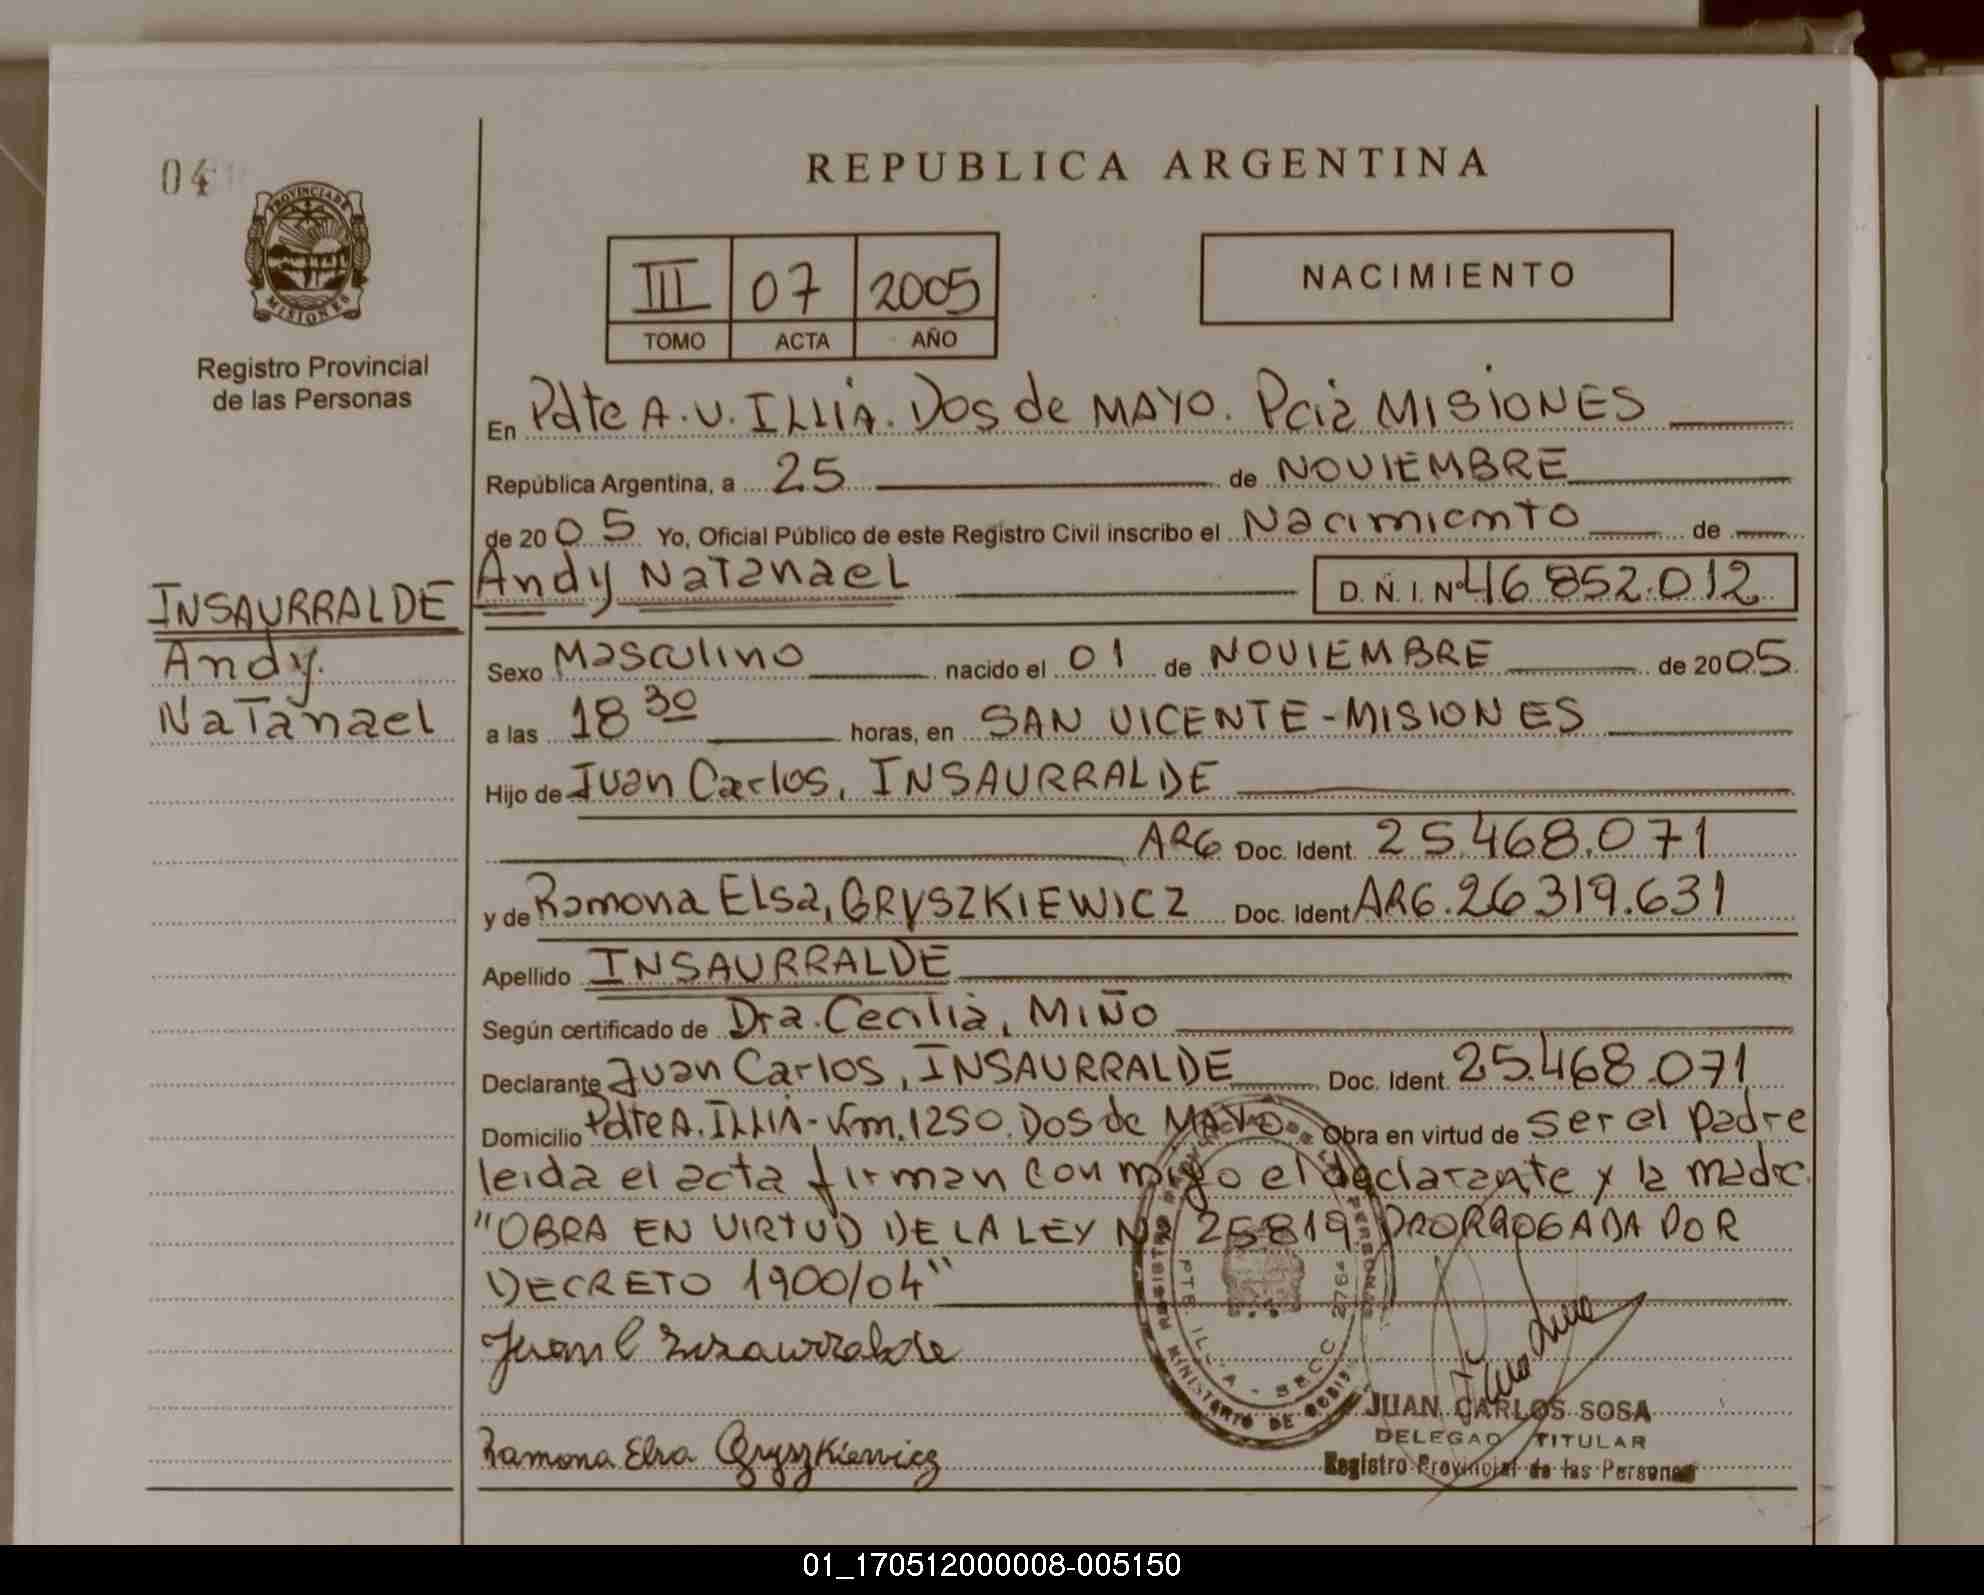 04
PROVINCIA DE
MISIONES
Registro Provincial
de las Personas
REPUBLICA ARGENTINA
III 07 2005
TOMO ACTA AÑO
NACIMIENTO
En Pdte A. U. ILLIA. Dos de MAYO. Pcia MISIONES
República Argentina, a 25 de NOVIEMBRE
de 2005 Yo, Oficial Público de este Registro Civil inscribo el Nacimiento de
Andy NATANAEL D.N.I. Nº 46.852.012
INSAURRALDE
Andy
NaTanael
Sexo Masculino nacido el 01 de NOVIEMBRE de 2005
a las 18 30 horas, en SAN VICENTE-MISIONES
Hijo de Juan Carlos, INSAURRALDE
ARG Doc. Ident. 25.468.071
y de Ramona Elsa, GRYSZKIEWICZ Doc. Ident ARG. 26.319.631
Apellido INSAURRALDE
Según certificado de Dra. Cecilia, MIÑO
Declarante Juan Carlos, INSAURRALDE Doc. Ident. 25.468.071
Domicilio Pdte A. ILLIA-Km. 1250. Dos de MAYO. Obra en virtud de ser el padre
leida el acta firman con migo el declarante y la madre.
"OBRA EN VIRTUD DE LA LEY Nº 25819 PRORROGADA POR
DECRETO 1900/04"
Juan C Insaurralde
Ramona Elsa Gryszkiewicz
PTE. ILLIA - SECC. 2764
MINISTERIO DE GOBIE
JUAN CARLOS SOSA
DELEGADO TITULAR
Registro Provincial de las Personas
01_170512000008-005150